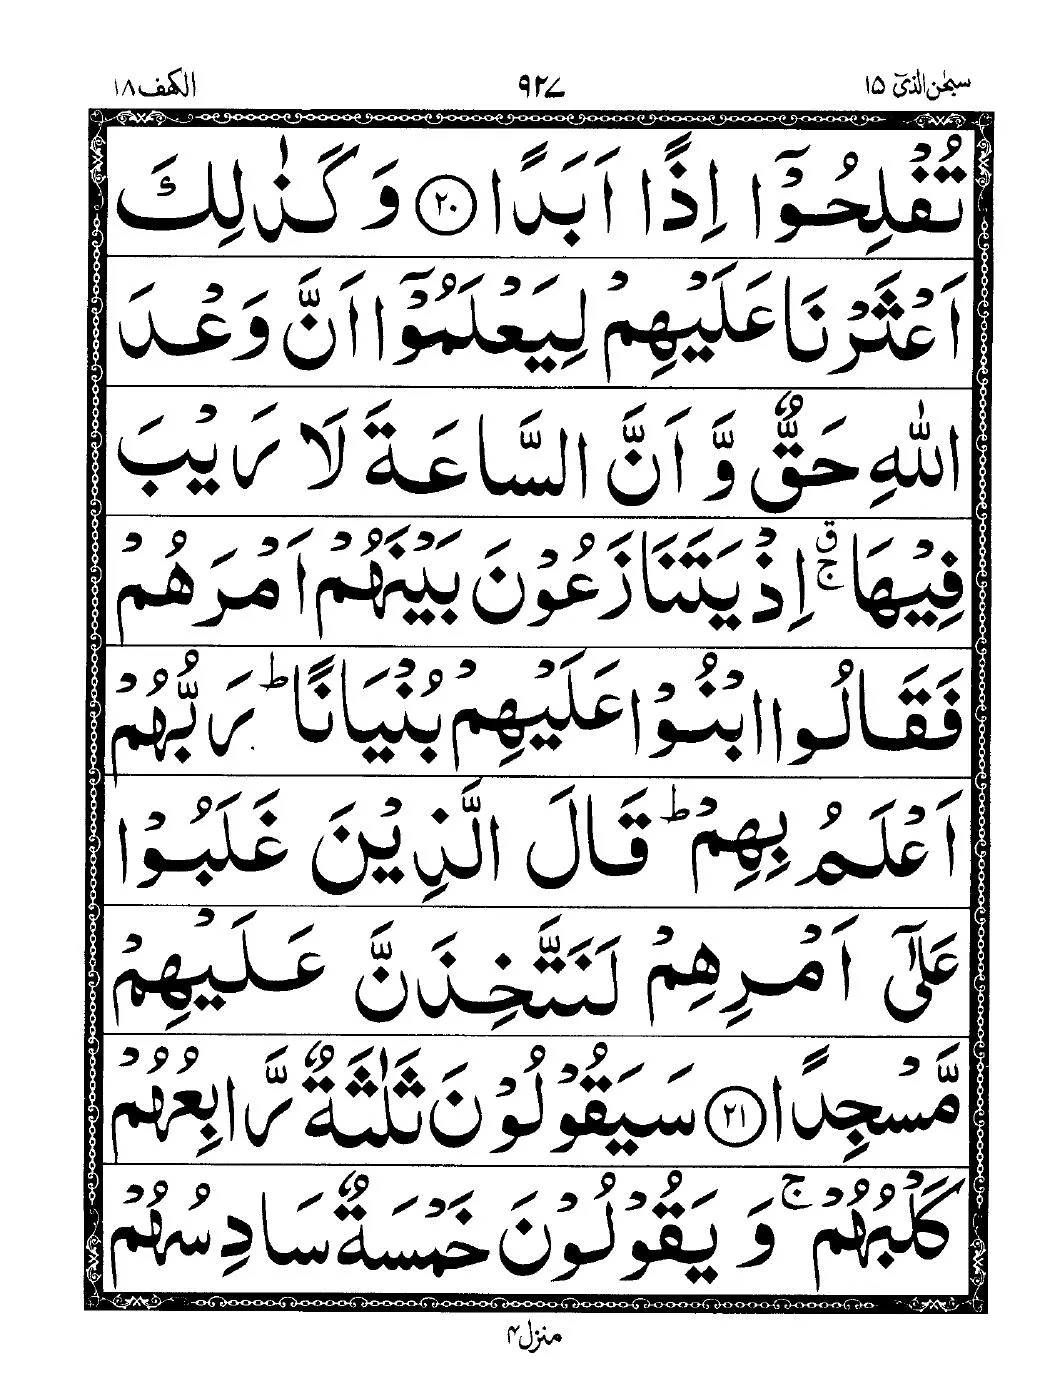 سبحٰن الذیٓ ۱۵ ۹۲۷ الکهف ۱۸
تُفْلِحُوْۤا اِذًا اَبَدًا ﴿۲۰﴾ وَ كَذٰلِكَ
اَعْثَرْنَا عَلَیْهِمْ لِیَعْلَمُوْۤا اَنَّ وَعْدَ
اللّٰهِ حَقٌّ وَّ اَنَّ السَّاعَةَ لَا رَیْبَ
فِیْهَا ۚۗ اِذْ یَتَنَازَعُوْنَ بَیْنَهُمْ اَمْرَهُمْ
فَقَالُوا ابْنُوْا عَلَیْهِمْ بُنْیَانًا ؕ رَبُّهُمْ
اَعْلَمُ بِهِمْ ؕ قَالَ الَّذِیْنَ غَلَبُوْا
عَلٰۤی اَمْرِهِمْ لَنَتَّخِذَنَّ عَلَیْهِمْ
مَّسْجِدًا ﴿۲۱﴾ سَیَقُوْلُوْنَ ثَلٰثَةٌ رَّابِعُهُمْ
كَلْبُهُمْ ۚ وَ یَقُوْلُوْنَ خَمْسَةٌ سَادِسُهُمْ
منزل ۴